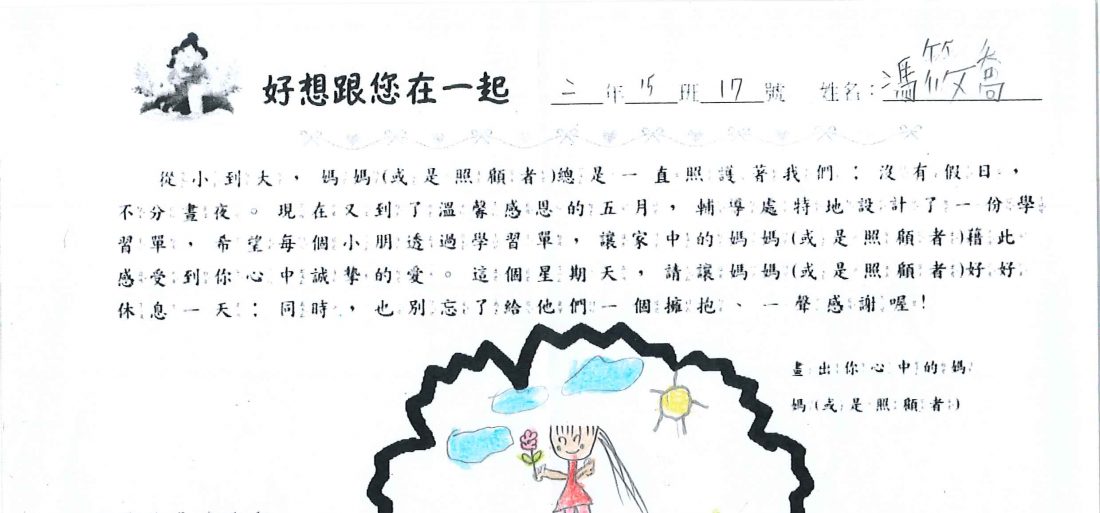 好想跟您在一起 二年15班17號 姓名：馮筱喬
從小到大，媽媽(或是照顧者)總是一直照護著我們；沒有假日，
不分晝夜。現在又到了溫馨感恩的五月，輔導處特地設計了一份學
習單，希望每個小朋透過學習單，讓家中的媽媽(或是照顧者)藉此
感受到你心中誠摯的愛。這個星期天，請讓媽媽(或是照顧者)好好
休息一天；同時，也別忘了給他們一個擁抱、一聲感謝喔！
畫出你心中的媽
媽(或是照顧者)